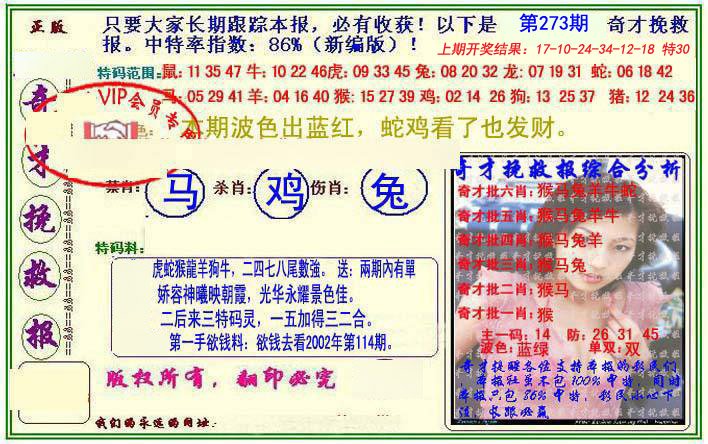 正版
只要大家长期跟踪本报，必有收获！以下是 第273期 奇才挽救
报。中特率指数：86%（新编版）！
上期开奖结果：17-10-24-34-12-18 特30
特码范围:鼠: 11 35 47 牛: 10 22 46虎: 09 33 45 兔: 08 20 32 龙: 07 19 31 蛇: 06 18 42
马: 05 29 41 羊: 04 16 40 猴: 15 27 39 鸡: 02 14 26 狗: 13 25 37 猪: 12 24 36
VIP会员专
本期波色出蓝红，蛇鸡看了也发财。
奇才挽救报
禁肖: 马 杀肖: 鸡 伤肖: 兔
特码料:
虎蛇猴龍羊狗牛，二四七八尾數強。 送：兩期內有單
娇容神曦映朝霞，光华永耀景色佳。
二后来三特码灵，一五加得三二合。
第一手欲钱料：欲钱去看2002年第114期。
版权所有，翻印必究
我们的永远的网址:
奇才挽救报综合分析
奇才批六肖: 猴马兔羊牛蛇
奇才批五肖: 猴马兔羊牛
奇才批四肖: 猴马兔羊
奇才批三肖: 猴马兔
奇才批二肖: 猴马
奇才批一肖: 猴
主一码: 14 防: 26 31 45
波色: 蓝绿 单双: 双
奇才提醒各位支持本报的彩民们
，本报社虽不包100%中特，但时
本报只包86%中特，彩民小心下
注，长跟必赢